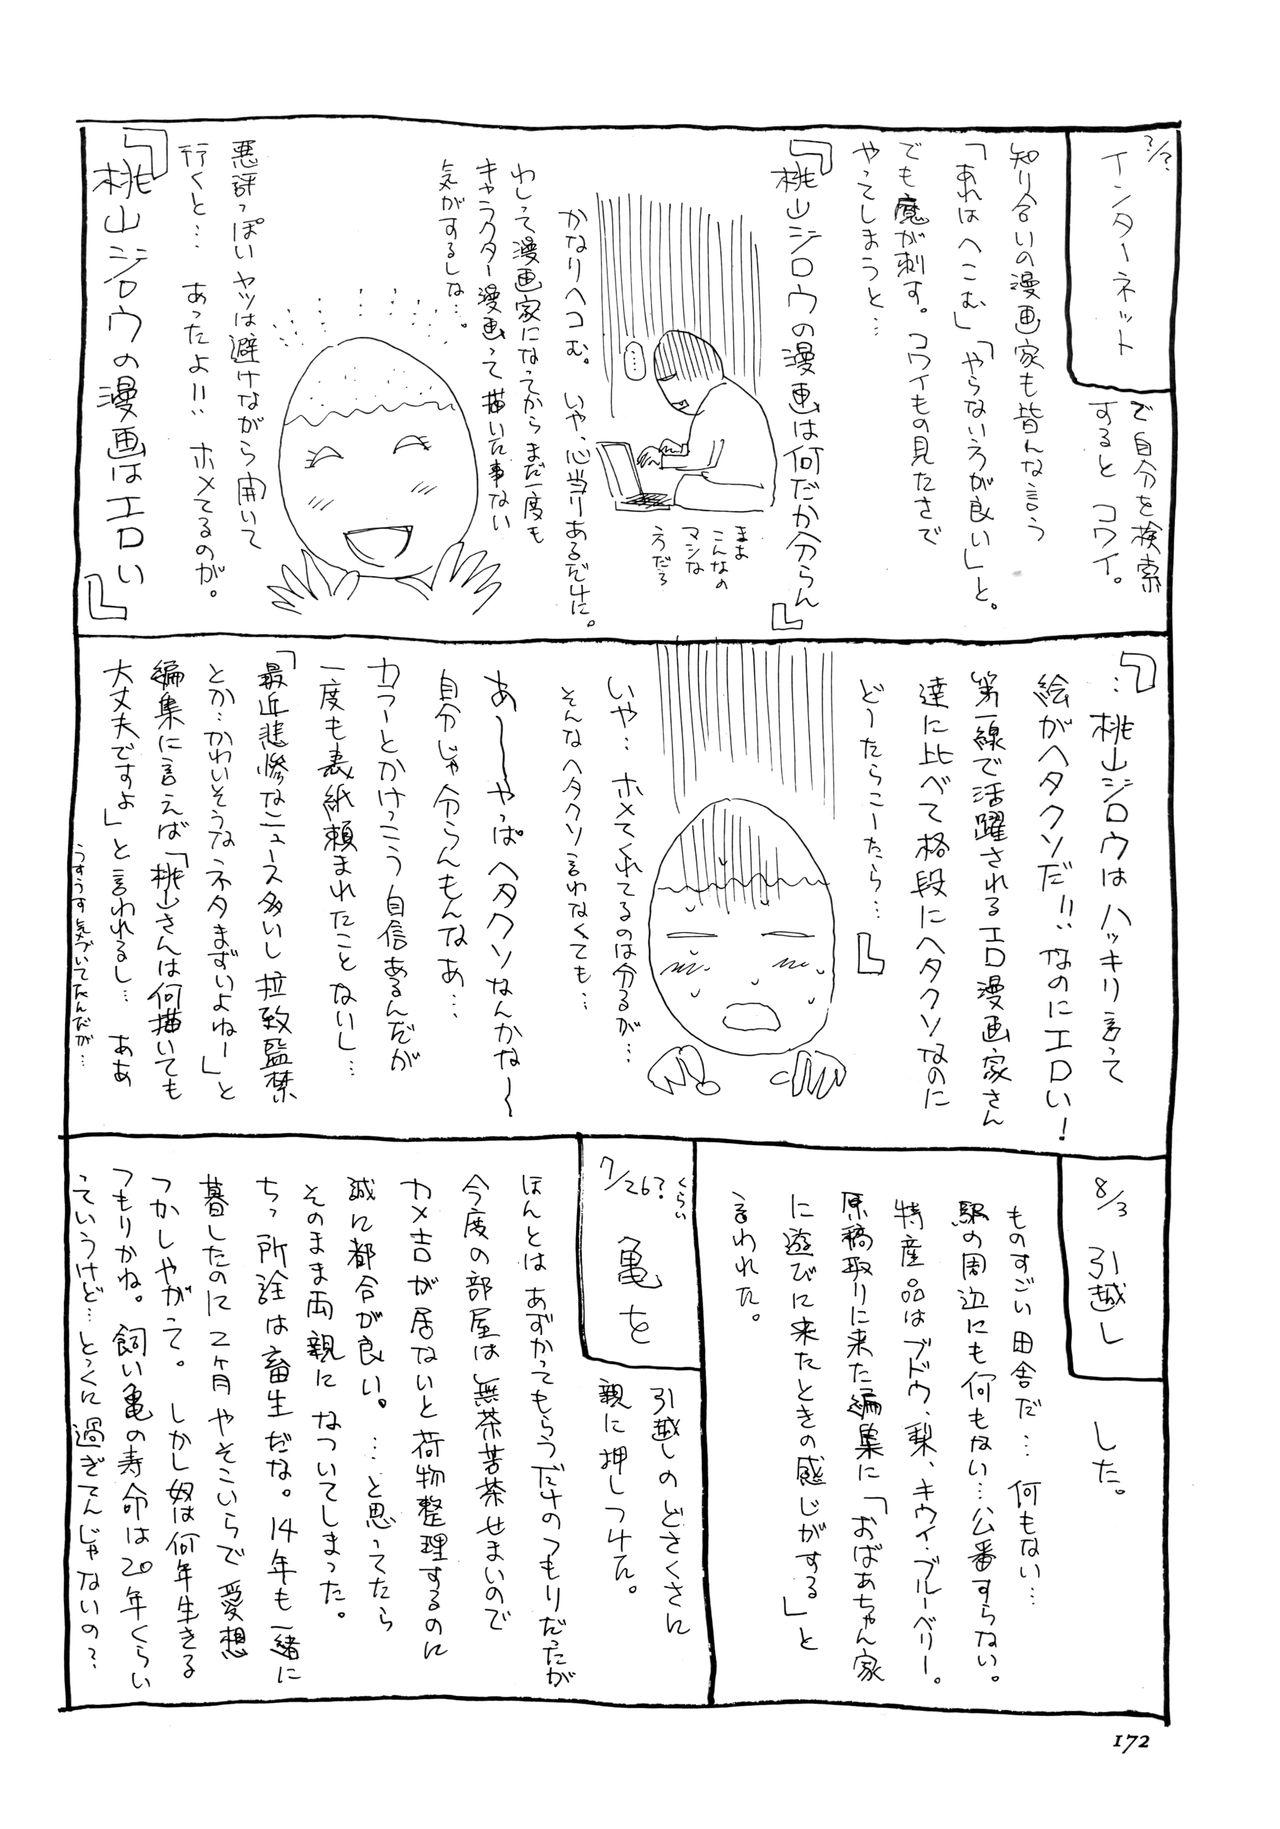 ?/?
インターネット
で自分を検索
するとコワイ。
知り合いの漫画家も皆んな言う
「あれはへこむ」「やらないろが良い」と。
でも魔が刺す。コワイもの見たさで
やってしまうと…
『桃山ジロウの漫画は何だか分らん』
……
まぁ
こんなの
マシな
うだろ
かなりヘコむ。いや、心当りあるだけに。
わしって漫画家になってからまだ一度も
キャラクター漫画って描いた事ない
気がするしな…。
悪評っぽいヤツは避けながら開いて
行くと…あったよ!!ホメてるのが。
『桃山ジロウの漫画はエロい』
『…桃山ジロウはハッキリ言って
絵がヘタクソだ!!なのにエロい!
第一線で活躍されるエロ漫画家さん
達に比べて格段にヘタクソなのに
どーたらこーたら…』
いや…ホメてくれてるのは分るが…
そんなヘタクソ言わなくても…
あ〜〜やっぱヘタクソなんかな〜
自分じゃ分らんもんなぁ…
カラーとかけっこう自信あるんだが
一度も表紙頼まれたことないし…
「最近悲惨なニュース多いし拉致監禁
とか…かわいそうなネタまずいよねー」と
編集に言えば「桃山さんは何描いても
大丈夫ですよ」と言われるし…ああ
うすうす気づいてたんだが…
8/3 引越し
した。
ものすごい田舎だ…何もない…
駅の周辺にも何もない…公番すらない。
特産品はブドウ、梨、キウイ・ブルーベリー。
原稿取りに来た編集に「おばあちゃん家
に遊びに来たときの感じがする」と
言われた。
7/26?くらい
亀を
引越しのどさくさに
親に押しつけた。
ほんとはあずかってもらうだけのつもりだったが
今度の部屋は無茶苦茶せまいので
カメ吉が居ないと荷物整理するのに
誠に都合が良い。…と思ってたら
そのまま両親になついてしまった。
ちっ所詮は畜生だな。14年も一緒に
暮したのに2ヶ月やそこいらで愛想
つかしやがって。しかし奴は何年生きる
つもりかね。飼い亀の寿命は20年くらい
っていうけど…とっくに過ぎてんじゃないの？
172